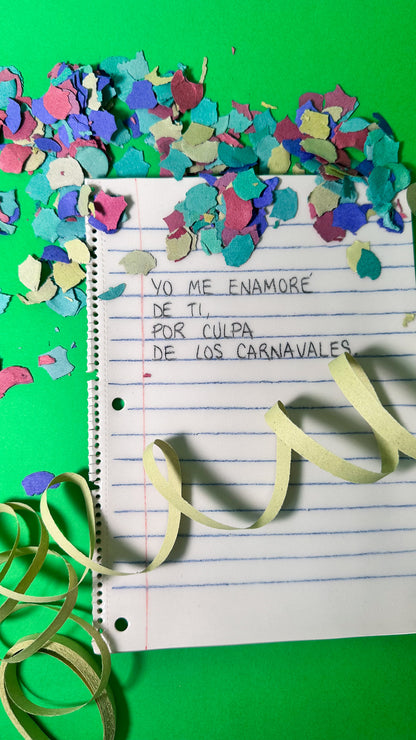 YO ME ENAMORÉ
DE TI,
POR CULPA
DE LOS CARNAVALES.